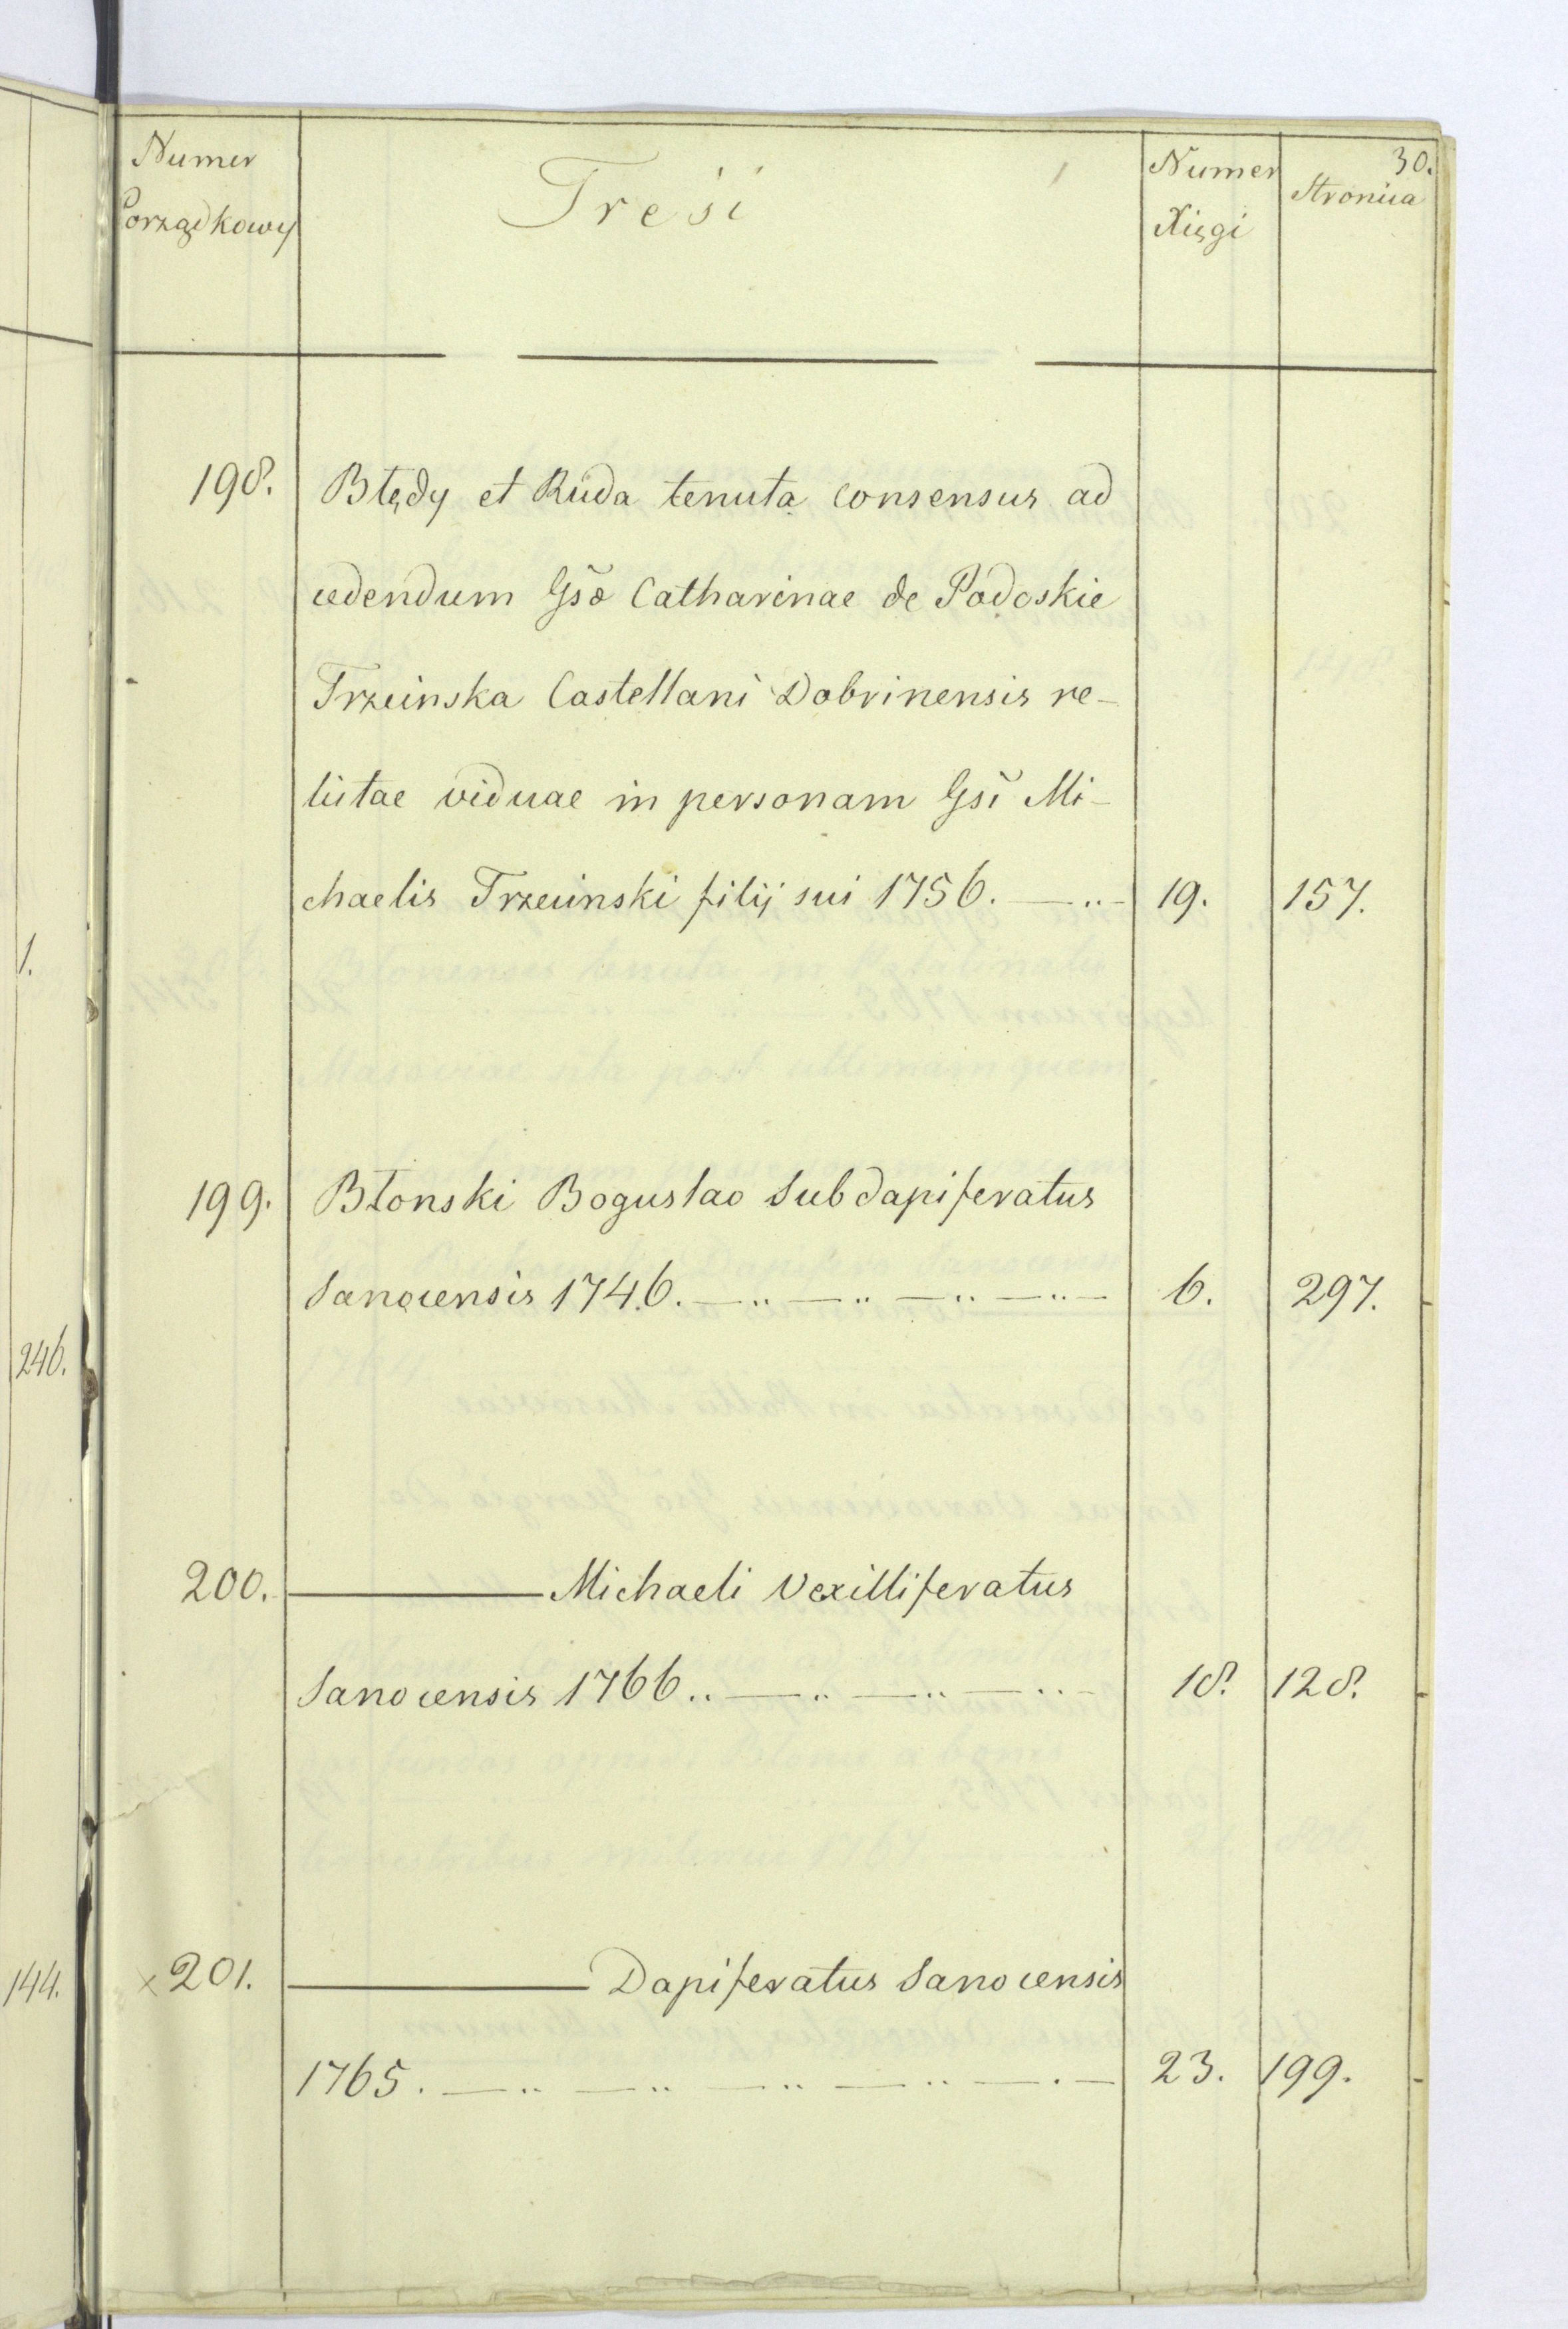 30.
Numer Porządkowy | Treść | Numer Xięgi | Stronica
198. Błędy et Ruda tenuta consensus ad
cedendum Gsae Catharinae de Podoskie
Trzcinska Castellani Dobrinensis re-
lictae viduae in personam Gsi Mi-
chaelis Trzcinski filij sui 1756. 19. 157.
199. Błonski Boguslao Subdapiferatus
Sanocensis 1746. 6. 297.
200. ——— Michaeli Vexilliferatus
Sanocensis 1766. 18. 128.
× 201. ——— Dapiferatus Sanocensis
1765. 23. 199.
1.
246.
144.